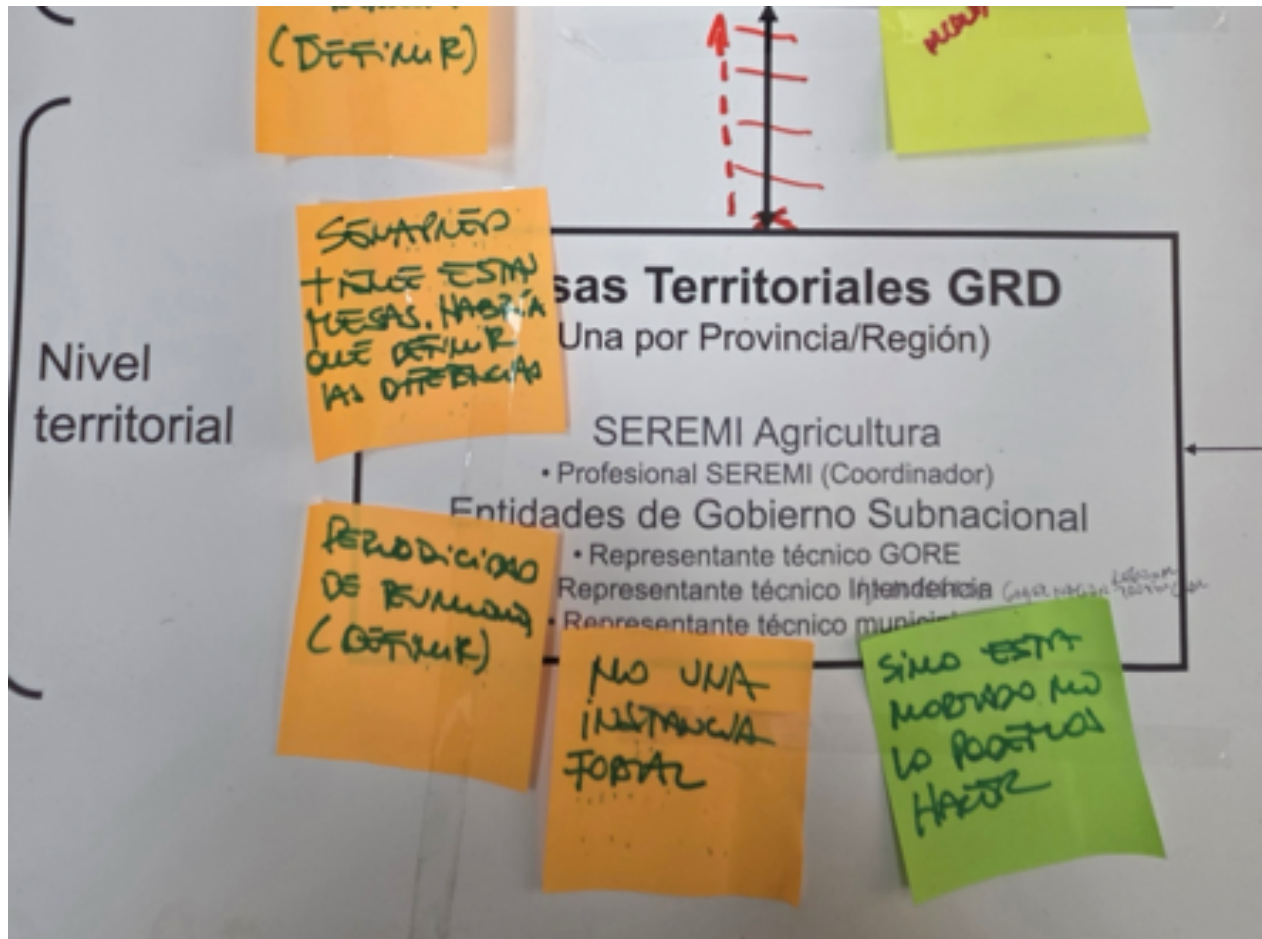 (DEFINIR)
SENAPRED
TIENE ESTAS
MESAS. HABRÍA
QUE DEFINIR
LAS DIFERENCIAS
sas Territoriales GRD
Una por Provincia/Región)
Nivel
territorial
SEREMI Agricultura
• Profesional SEREMI (Coordinador)
Entidades de Gobierno Subnacional
• Representante técnico GORE
Representante técnico Intendencia
• Representante técnico munici
PERIODICIDAD
DE REUNIONES
(DEFINIR)
NO UNA
INSTANCIA
FORMAL
SI NO ESTA
NORMADO NO
LO PODEMOS
HACER